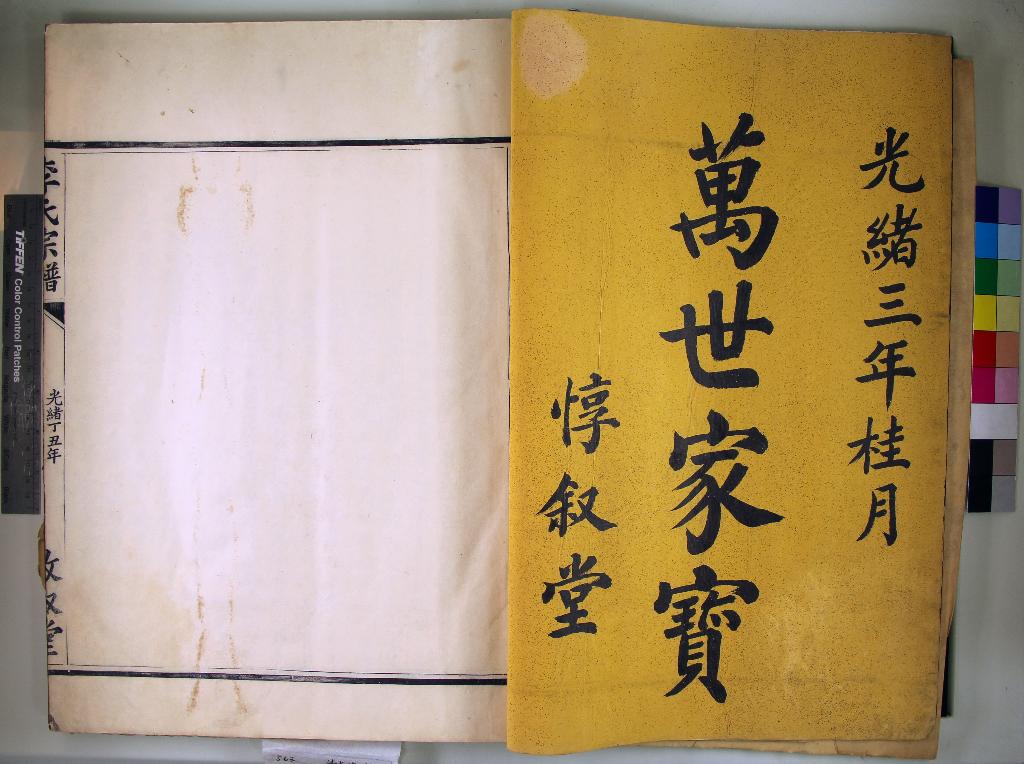 光緒三年桂月
萬世家寶
惇叙堂
李氏宗譜
光緒丁丑年
叙堂
TIFFEN Color Control Patches